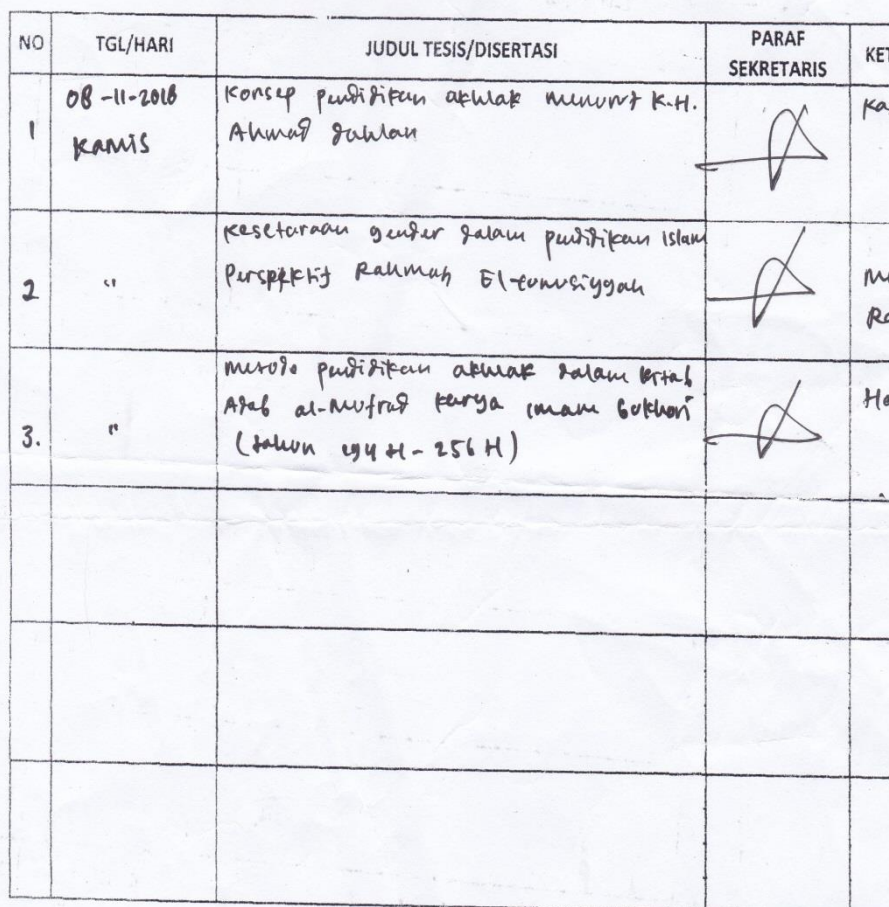 NO TGL/HARI JUDUL TESIS/DISERTASI PARAF SEKRETARIS KET
1 08-11-2018 Kamis Konsep pendidikan akhlak menurut K.H.
Ahmad Dahlan
Ka
2 " Kesetaraan gender dalam pendidikan Islam
Perspektif Rahmah El-Yunusiyyah
Ra
3. " Metode pendidikan akhlak dalam kitab
Adab al-Mufrad karya imam Bukhori
(tahun 194 H - 256 H)
Ha